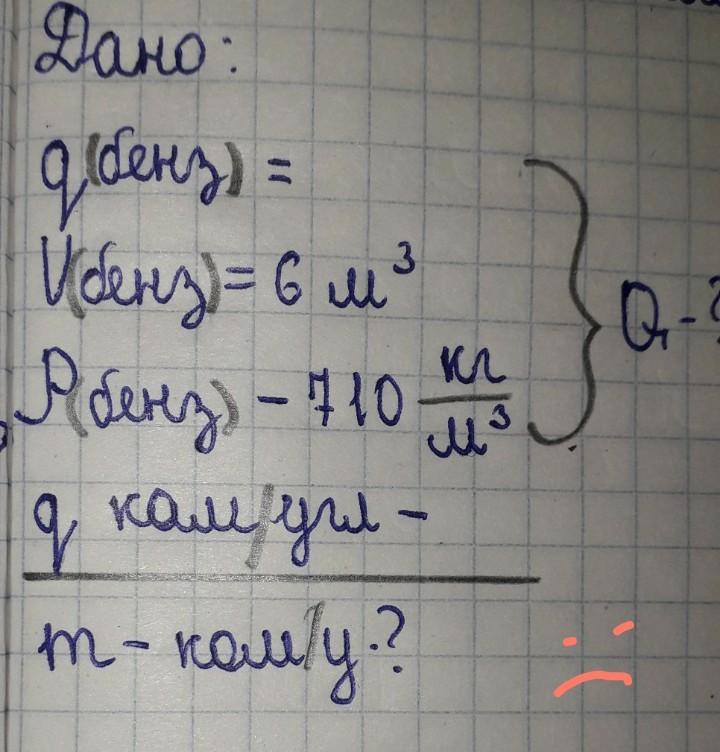 Дано:
q(бенз) =
V(бенз) = 6 м³
ρ(бенз) – 710 кг/м³
Q₁ – ?
q кам/угл –
m – кам/у.?